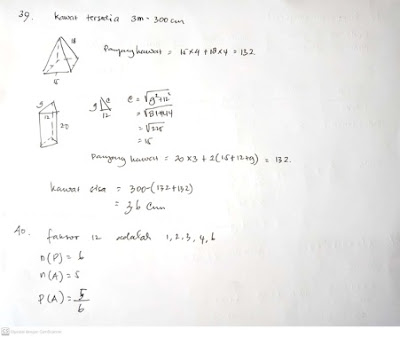 39. Kawat tersedia 3m = 300 cm
18
15
Panjang kawat = 15 x 4 + 18 x 4 = 132
9
12
20
9 c
12
c = √9² + 12²
= √81 + 144
= √225
= 15
Panjang kawat = 20 x 3 + 2(15 + 12 + 9) = 132.
Kawat sisa = 300 - (132 + 132)
= 36 cm
40. faktor 12 adalah 1, 2, 3, 4, 6
n(P) = 6
n(A) = 5
P(A) = 5
6
CS